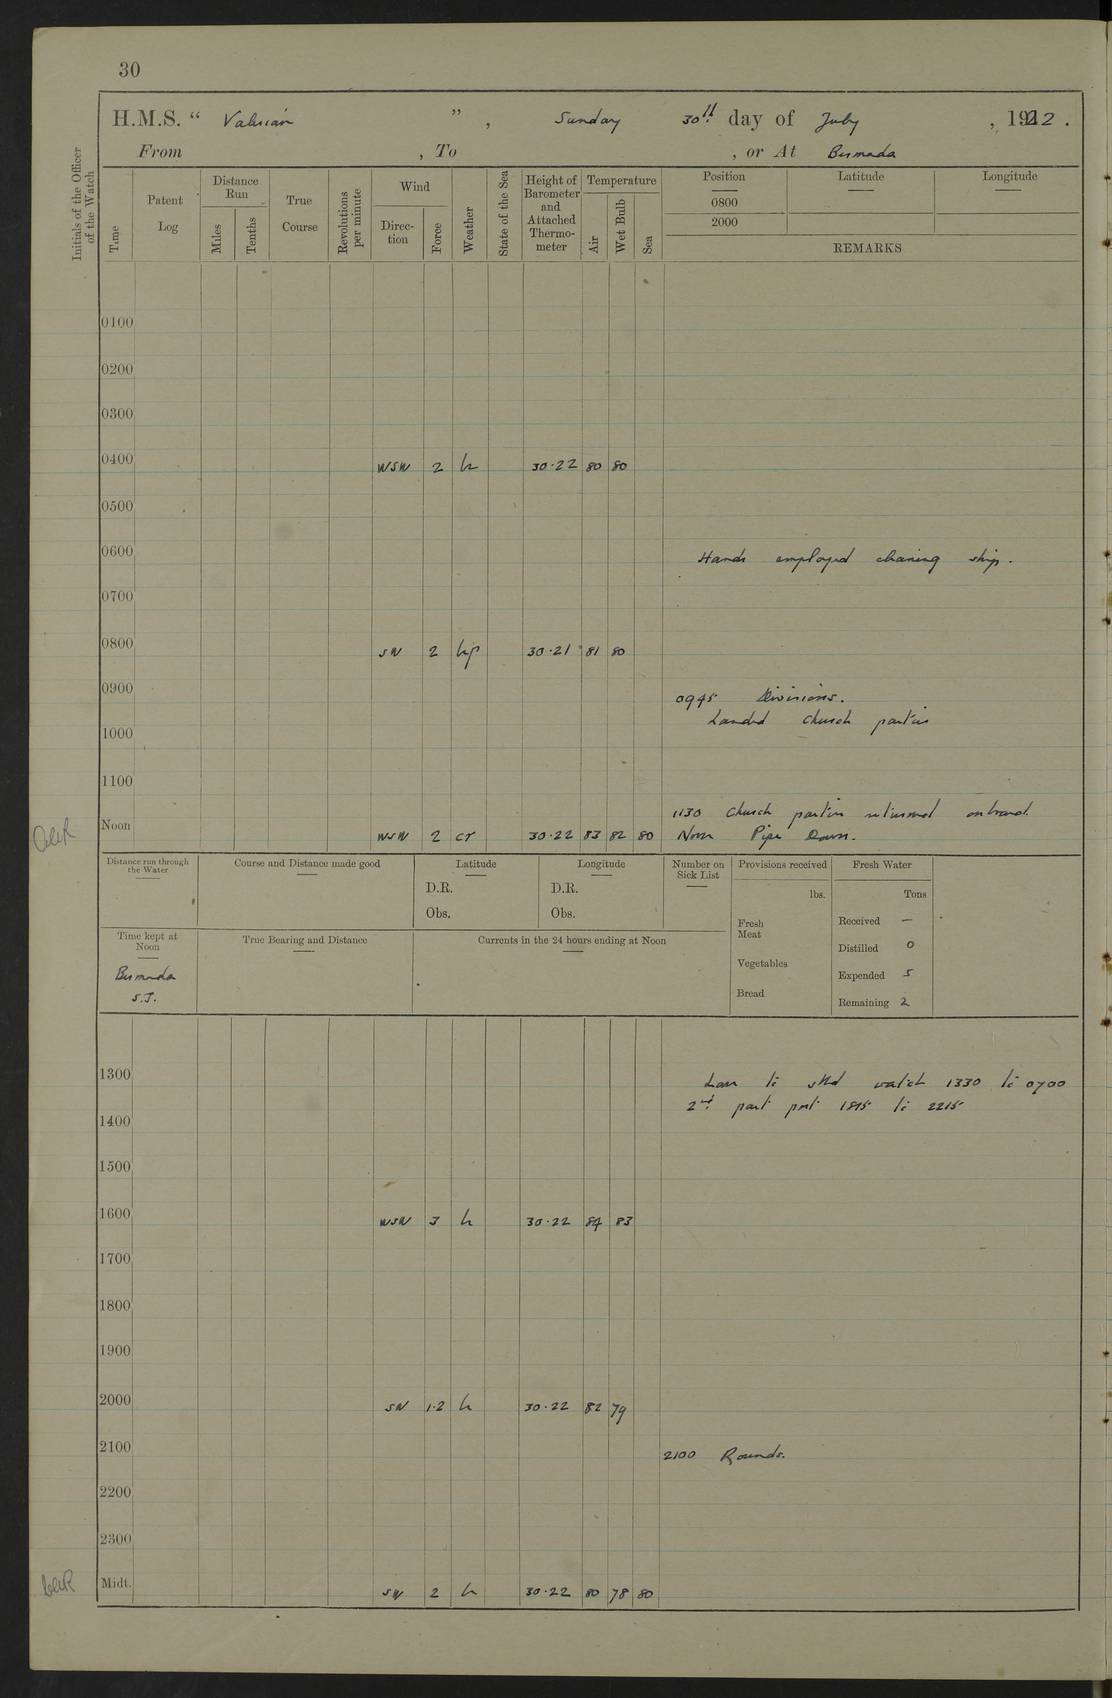 30
H.M.S. “ Valerian ” , Sunday 30th day of July , 1922 .
From , To , or At Bermuda
Initials of the Officer of the Watch
Time
Patent Log
Distance Run
Miles
Tenths
True Course
Revolutions per minute
Wind
Direc-tion
Force
Weather
State of the Sea
Height of Barometer and Attached Thermo-meter
Temperature
Air
Wet Bulb
Sea
Position Latitude Longitude
0800
2000
REMARKS
0100
0200
0300
0400 WSW 2 b 30·22 80 80
0500
0600 Hands employed cleaning ship.
0700
0800 SW 2 bp 30·21 81 80
0900 0945 Divisions.
Landed church parties
1000
1100
1130 Church parties returned onboard.
Noon WSW 2 cr 30·22 83 82 80 Noon Pipe Down.
Distance run through the Water
Course and Distance made good
Latitude
D.R.
Obs.
Longitude
D.R.
Obs.
Number on Sick List
Provisions received
lbs.
Fresh Meat
Vegetables
Bread
Fresh Water
Tons
Received —
Distilled 0
Expended 5
Remaining 2
Time kept at Noon
Bermuda
S.T.
True Bearing and Distance
Currents in the 24 hours ending at Noon
1300 Leave to stbd watch 1330 to 0700
2nd part port 1815 to 2215
1400
1500
1600 WSW 3 b 30·22 84 83
1700
1800
1900
2000 SW 1·2 b 30·22 82 79
2100 2100 Rounds.
2200
2300
Midt. SW 2 b 30·22 80 78 80